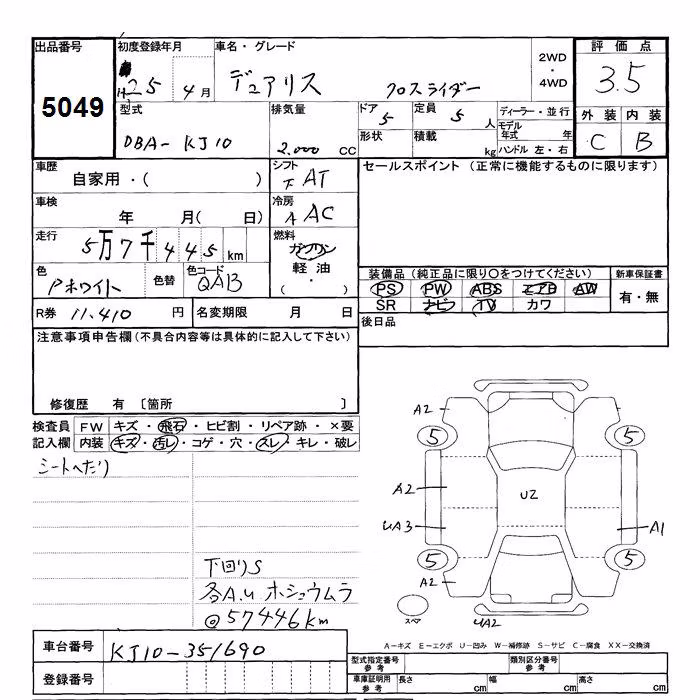 出品番号 初度登録年月 車名・グレード 評価点
5049
H 25 4月 デュアリス クロスライダー 2WD・4WD 3.5
型式 排気量 ドア 定員 ディーラー・並行 外装 内装
DBA-KJ10 2.000 CC 5 5人 モデル年式 年 C B
形状 積載 kg ハンドル 左・右
車歴 シフト セールスポイント (正常に機能するものに限ります)
自家用・( ) F AT
車検 冷房
年 月( 日) A AC
走行 燃料
5万7千445km ガソリン
軽油
・( )
色 色替 色コード
Pホワイト QAB
装備品 (純正品に限り○をつけてください) 新車保証書
PS PW ABS エアB AW 有・無
SR ナビ TV カワ
R券 11.410円 名変期限 月 日 後日品
注意事項申告欄(不具合内容等は具体的に記入して下さい)
修復歴 有 〔箇所 〕
検査員 FW キズ・飛石・ヒビ割・リペア跡・×要
記入欄 内装 キズ・汚レ・コゲ・穴・スレ・キレ・破レ
シートへたり
下回りS
各A.U ホシュウムラ
@57446km
A2
5 5
A2 U2
UA3 A1
5 5
A2
スペア UA2
A-キズ E-エクボ U-凹み W-補修跡 S-サビ C-腐食 XX-交換済
車台番号 KJ10-351690
登録番号
型式指定番号 参考 類別区分番号 参考
車庫証明用 参考 長さ cm 幅 cm 高さ cm